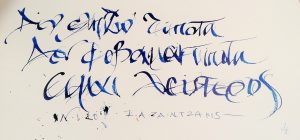 Δεν ελπίζω τίποτα
Δεν φοβάμαι τίποτα
Είμαι λεύτερος
ΝΙΚΟΣ ΚΑΖΑΝΤΖΑΚΗΣ